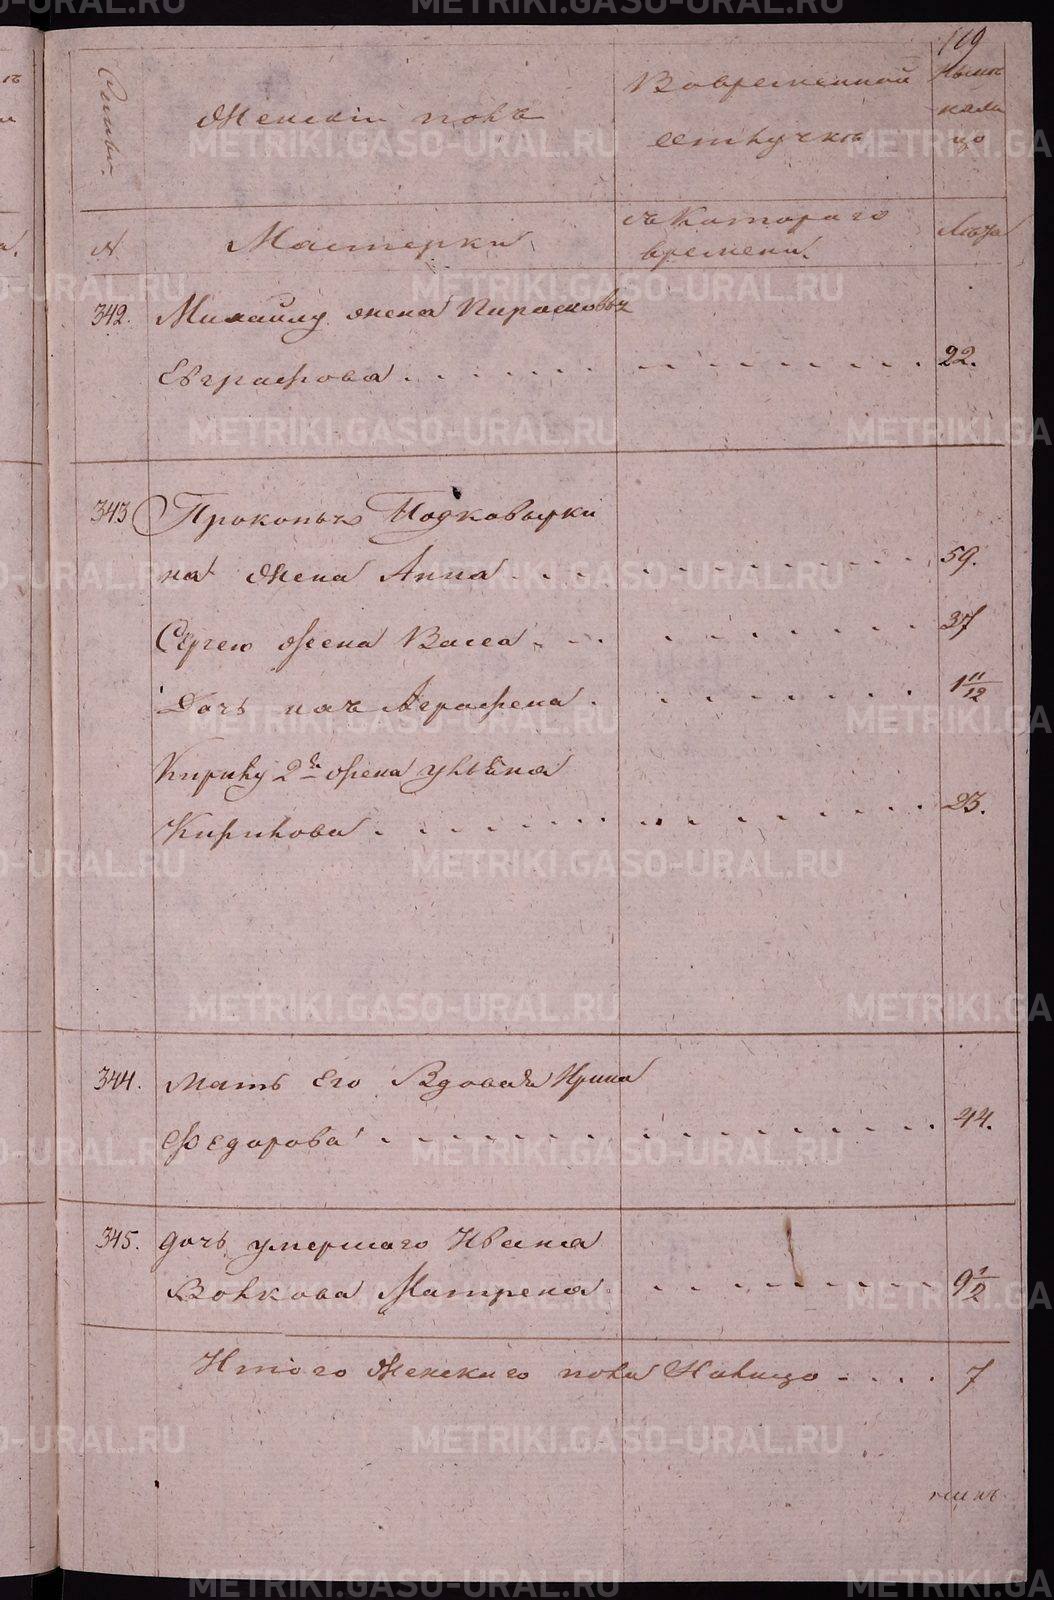 119
Семьи.
Женскій полъ
Во временной
отлучкѣ
Нынѣ
нали
цо
№
Мастерки
съ котораго
времени.
Лѣта
342. Михайлу жена Парасковья
Евграфова 22.
343 Прокопья Подковырки
на жена Анна 59.
Сергею жена Васса 37
Дочь ихъ Аграфена 1 11/12
Кирилу 2й жена Ульяна
Кирилова 23.
344. Мать Его Вдова Ирина
Федорова 44.
345. дочь умершаго Ивана
Волкова Матрена 9 1/2
Итого Женскаго пола Налицо 7
METRIKI.GASO-URAL.RU